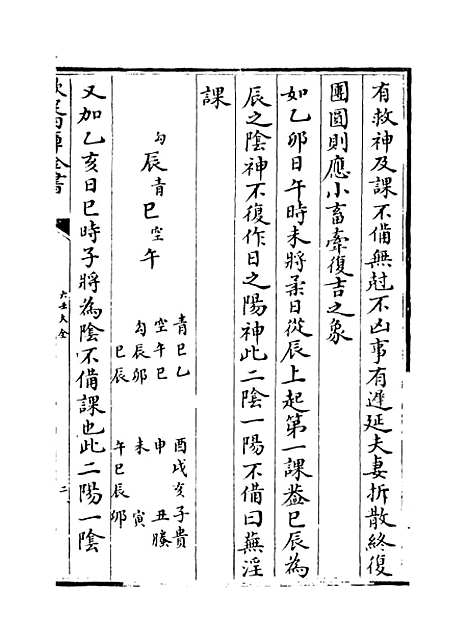 有救神及課不備無尅不凶事有遲延夫妻拆散終復
團圓則應小畜牽復吉之象
如乙卯日午時未將柔日從辰上起第一課葢巳辰為
辰之陰神不復作日之陽神此二陰一陽不備曰蕪淫
課
勾辰青巳空午
青巳乙
空午巳
勾辰卯
巳辰
酉戌亥子貴
申 丑螣
未 寅
午巳辰卯
又如乙亥日巳時子將為陰不備課也此二陽一陰
欽定四庫全書
六壬大全
二